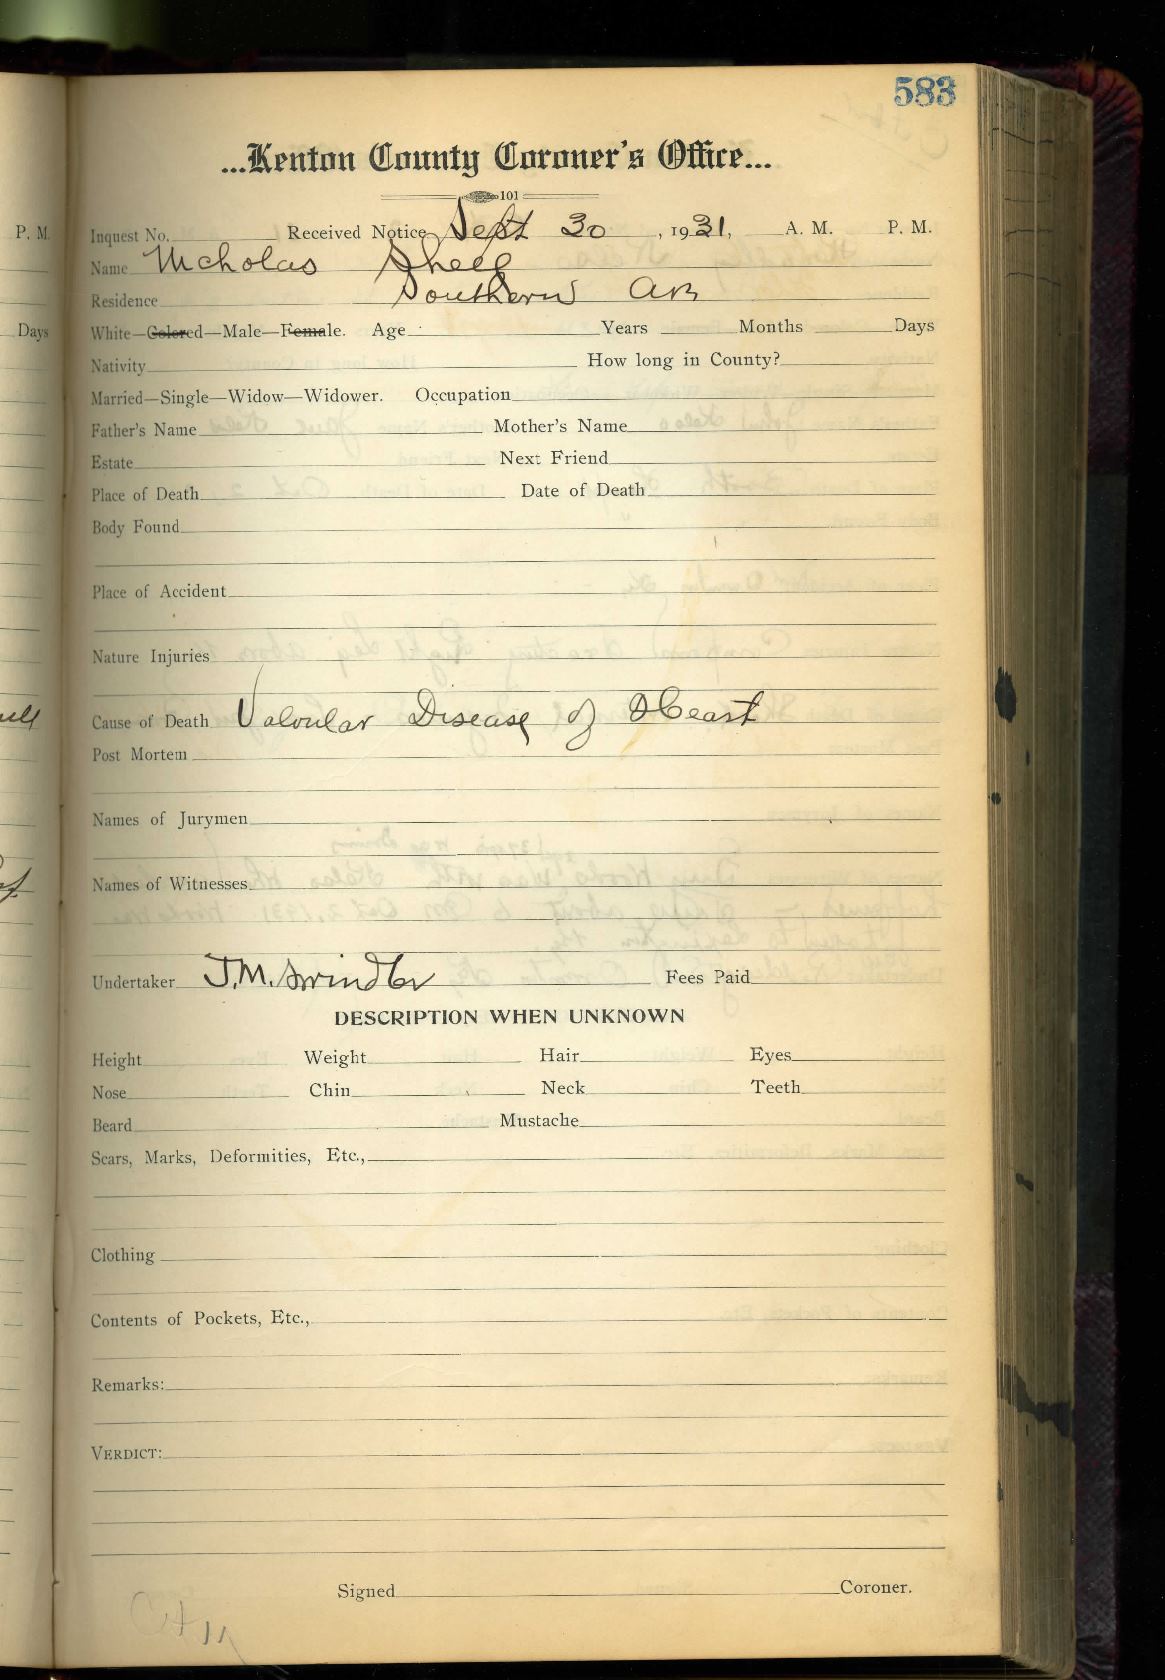 583
...Kenton County Coroner's Office...
101
Inquest No. Received Notice Sept 30, 1931, A. M. P. M.
Name Nicholas Shell
Residence Southern Ave
White—Colored—Male—Female. Age Years Months Days
Nativity How long in County?
Married—Single—Widow—Widower. Occupation
Father's Name Mother's Name
Estate Next Friend
Place of Death Date of Death
Body Found
Place of Accident
Nature Injuries
Cause of Death Valvular Disease of Heart
Post Mortem
Names of Jurymen
Names of Witnesses
Undertaker J.M. Swindler Fees Paid
DESCRIPTION WHEN UNKNOWN
Height Weight Hair Eyes
Nose Chin Neck Teeth
Beard Mustache
Scars, Marks, Deformities, Etc.,
Clothing
Contents of Pockets, Etc.,
Remarks:
VERDICT:
Signed Coroner.
City
P. M.
Days